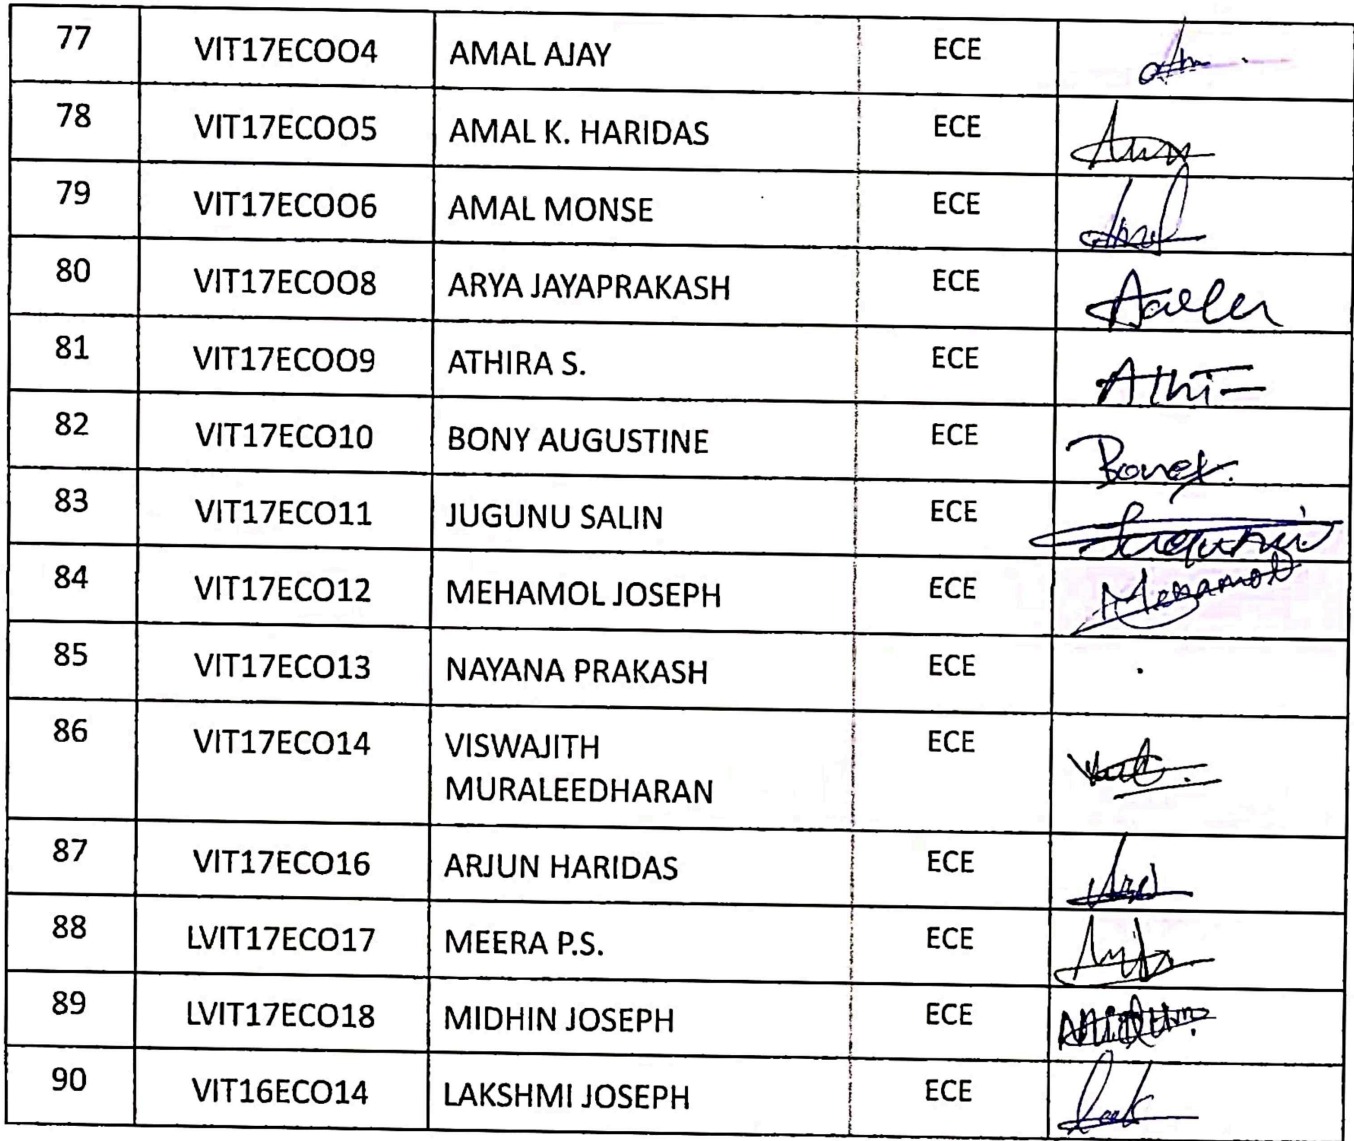 77 VIT17ECOO4 AMAL AJAY ECE
78 VIT17ECOO5 AMAL K. HARIDAS ECE
79 VIT17ECOO6 AMAL MONSE ECE
80 VIT17ECOO8 ARYA JAYAPRAKASH ECE
81 VIT17ECOO9 ATHIRA S. ECE
82 VIT17ECO10 BONY AUGUSTINE ECE
83 VIT17ECO11 JUGUNU SALIN ECE
84 VIT17ECO12 MEHAMOL JOSEPH ECE Mehamol
85 VIT17ECO13 NAYANA PRAKASH ECE
86 VIT17ECO14 VISWAJITH ECE
MURALEEDHARAN
87 VIT17ECO16 ARJUN HARIDAS ECE
88 LVIT17ECO17 MEERA P.S. ECE
89 LVIT17ECO18 MIDHIN JOSEPH ECE
90 VIT16ECO14 LAKSHMI JOSEPH ECE